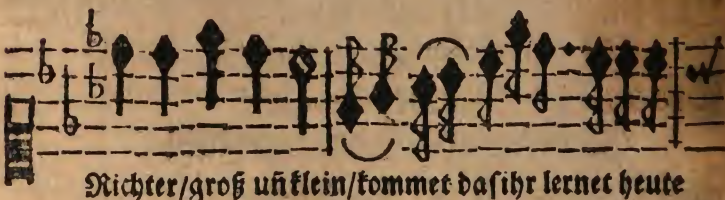 Richter/groß uñ klein/kommet dasihr lernet heute